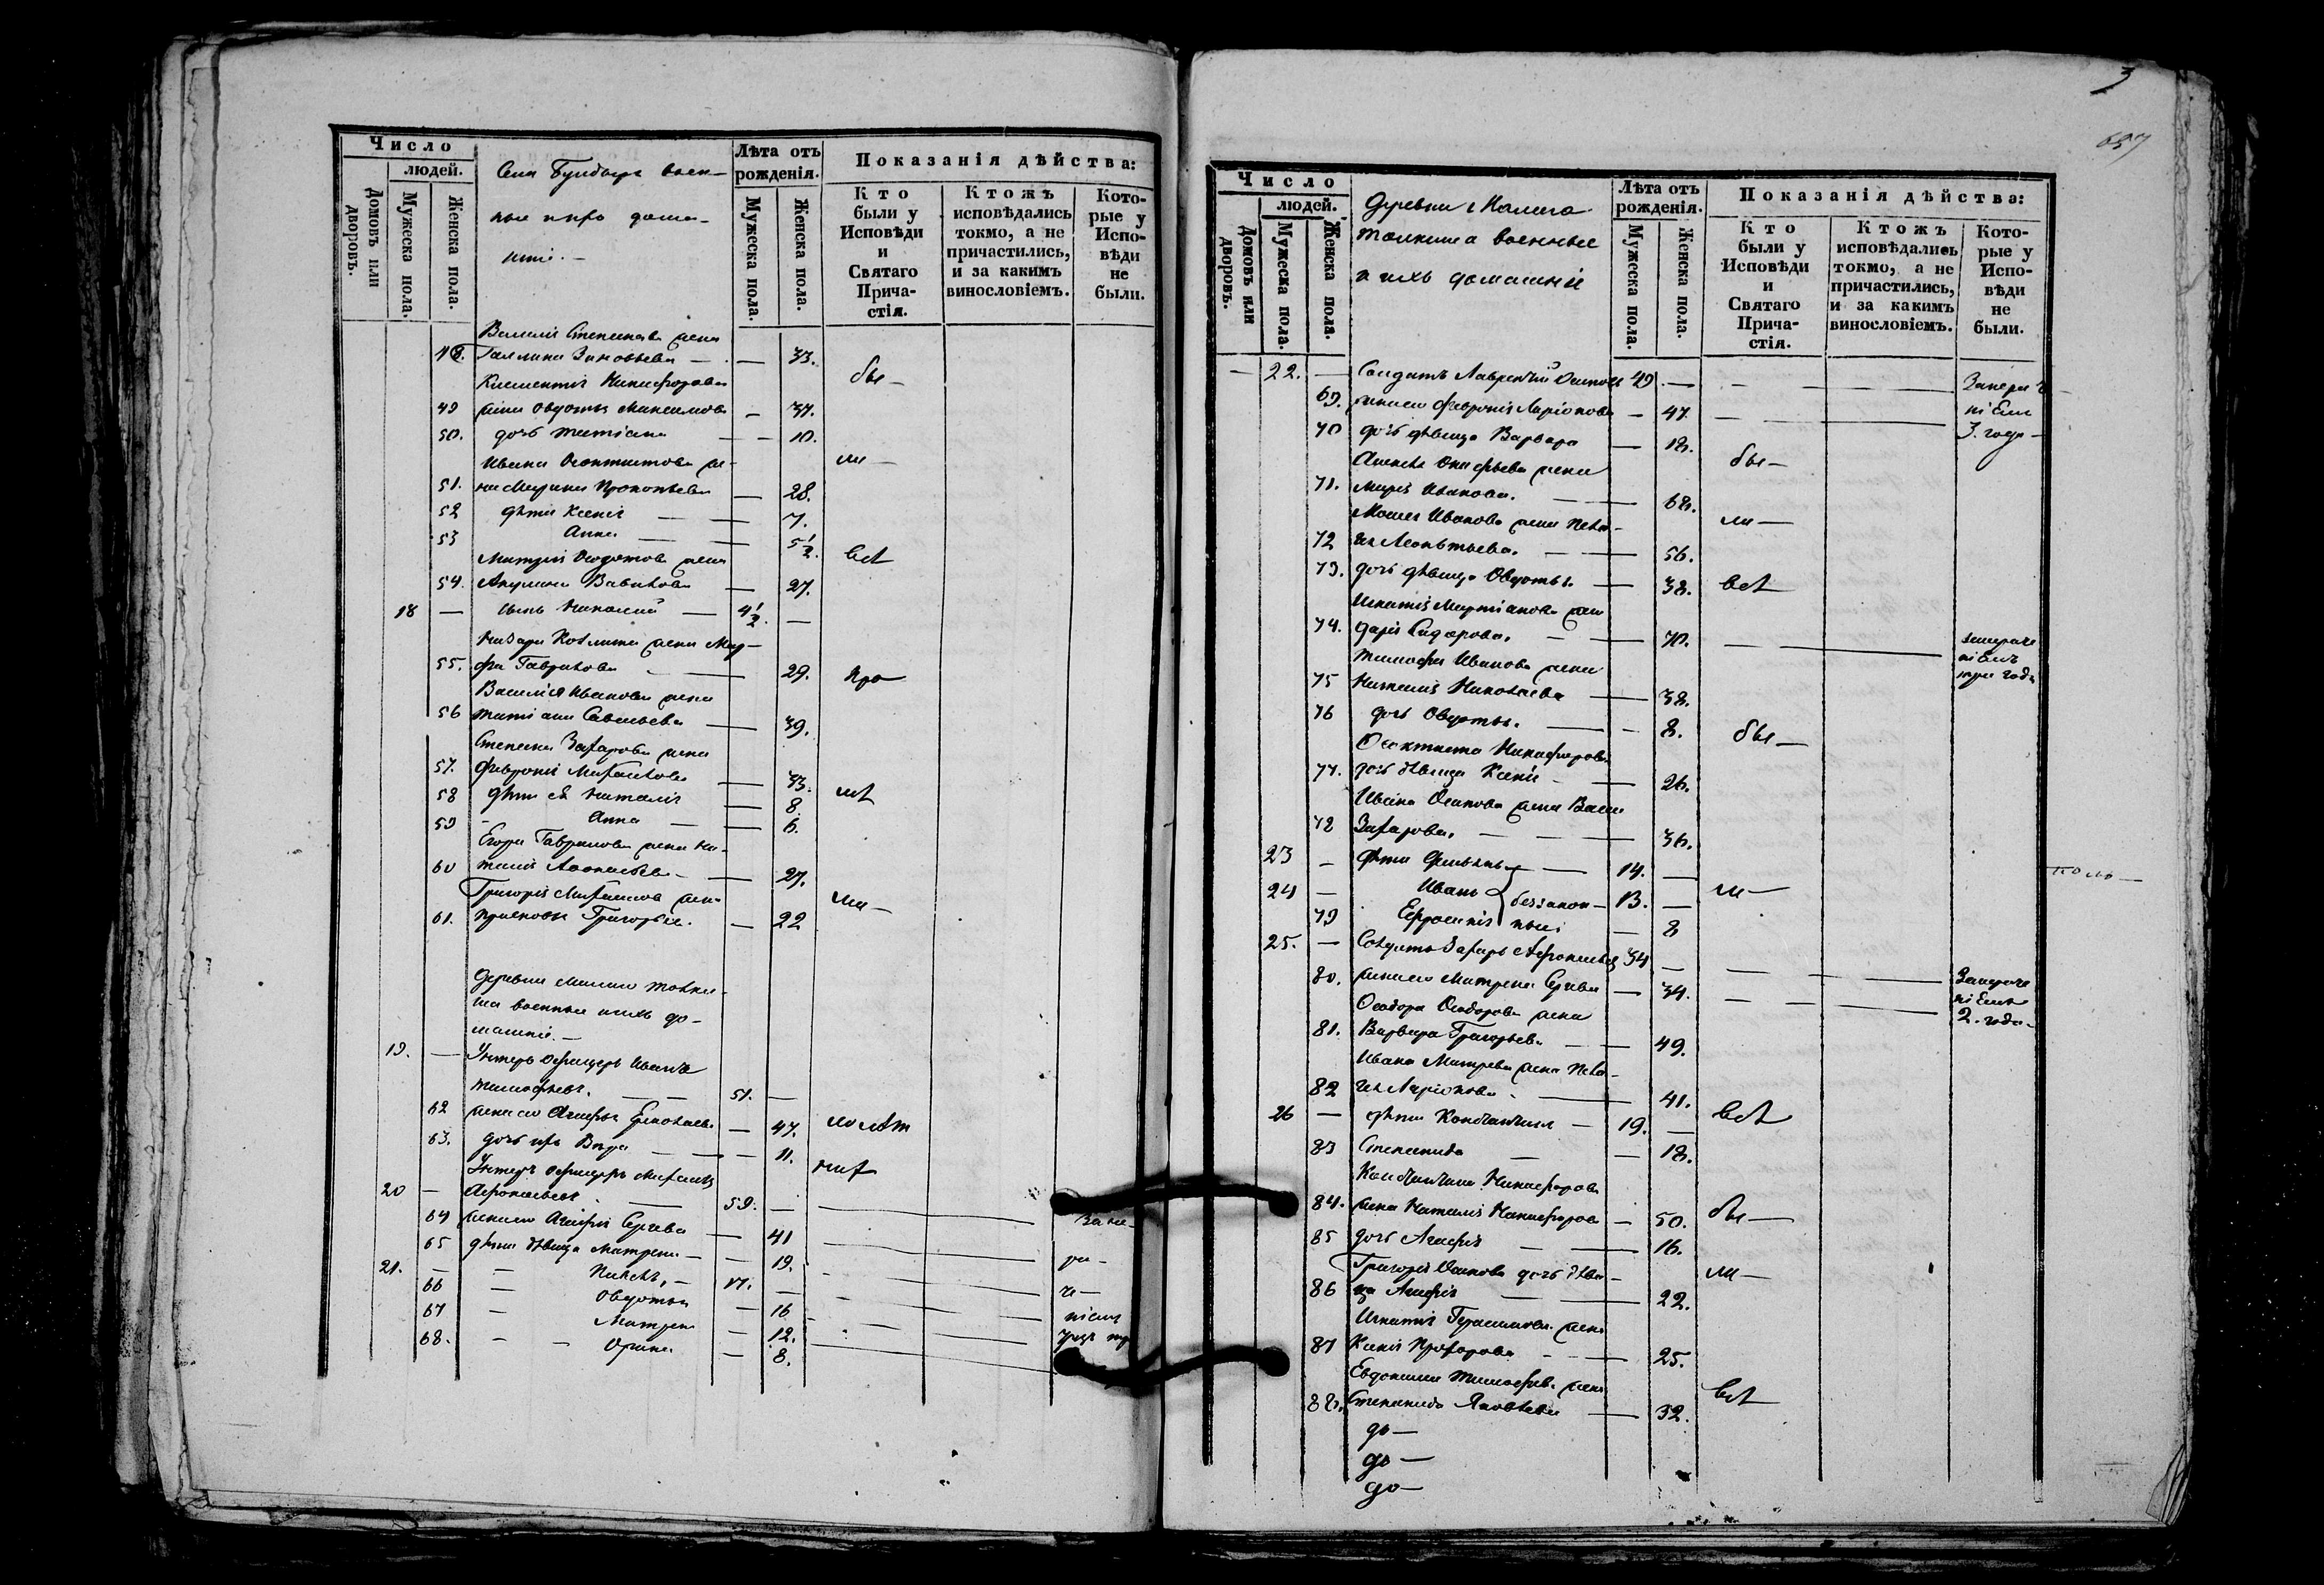 Число
людей.
Домовъ или дворовъ.
Мужеска пола.
Женска пола.
Села воен-
ные домаш-
Лѣта отъ рожденія.
Мужеска пола.
Женска пола.
Показанія дѣйства:
Кто были у Исповѣди и Святаго Прича-стія.
Ктожъ исповѣдались токмо, а не причастились, и за какимъ винословіемъ.
Кото-рые у Испо-вѣди не были.
Василия Степанова жена
48. Галлина Зиновьева — 33.
бы —
Климентія Никифорова
49 жена Овдотья Максимова — 37.
50. дочь Татіана — 10.
Ивана Феоктистова же-
ли —
51. на Марина Прокопьева — 28.
52 дѣти Ксенія — 7.
53 Анна — 5½.
всѣ
Дмитрія Федотова жена
54. Акулина Вавилова — 27.
18 — сынъ Николай — 4½. —
Назара жена Мар-
55. фа Гаврилова — 29.
Василія Иванова жена
56 Татіана Савельева — 39.
Степана Захарова жена
57. Февронія Михайлова — 33.
58 дѣти ея Наталія — 8
59 Анна — 6.
Егора Гаврилова жена На-
60 талія Афонасьева — 27.
Григорія Михайлова жена
61. Прасковья Григорьева — 22
Деревни Малаго Толки-
ша военные и ихъ до-
машніе. —
19. — Унтеръ офицеръ Иванъ
Тимофѣевъ. — 51. —
62 жена его Агафья Ермолаева — 47.
63. дочь ихъ Вѣра — 11.
Унтеръ офицеръ Михаилъ
20 — Афонасьевъ — 59. —
64 жена его Агафія Сергѣева — 41
За не-
65 дѣти дѣвица Матрена — 19.
ра-
21. — Павелъ — 17. —
че —
66 — Овдотья — 16
ніемъ
67 — Матрена — 12.
68. — Орина — 8.
3
657
Число
людей.
Домовъ или дворовъ.
Мужеска пола.
Женска пола.
Деревни Малаго
Толкиша военные
и ихъ домашніе
Лѣта отъ рожденія.
Мужеска пола.
Женска пола.
Показанія дѣйства:
Кто были у Исповѣди и Святаго Прича-стія.
Ктожъ исповѣдались токмо, а не причастились, и за какимъ винословіемъ.
Кото-рые у Испо-вѣди не были.
— 22. — Солдатъ Лаврентій Осиповъ 49. —
69. жена его Февронія Ларіонова — 47.
3. года —
70 дочь дѣвица Варвара — 18.
бы —
Алексѣя Онисфьева жена
71. Марія Иванова. — 68.
Моисея Иванова жена Пела-
ли —
72 гея Леонтьева. — 56.
73. дочь дѣвица Овдотья — 38.
всѣ
Игнатія Мартіанова жена
74. Дарія Сидорова. — 70.
три года
Тимофея Иванова жена
75 Наталія Николаева — 38.
76 дочь Овдотья. — 8.
бы —
Феоктиста Никифорова
77. дочь дѣвица Ксенія — 26.
Ивана Осипова жена Васса
78 Захарова. — 36.
23 — дѣти — 14. —
24 — Иванъ беззакон- — 13. —
ли —
79 Ефросинія ные — 8
25. — Солдатъ Захаръ Афонасьевъ 34 —
80. жена его Матрена Сергѣева — 34.
2. года —
Феодора Феодорова жена
81. Варвара Григорьева — 49.
Ивана Дмитрева жена Пела-
82 гея Ларіонова — 41.
26 — дѣти Констинтинъ — 19. —
всѣ
83 Степанида — 18.
Констинтина Никифорова
84. жена Наталія Никифорова — 50.
бы —
85 дочь Агафія — 16.
Григорія Осипова дочь дѣви-
ли —
86 ца Агафія — 22.
Игнатія Герасимова жена
87 Ксенія Прохорова — 25.
Евдокима Тимофѣева жена
всѣ
88. Степанида Яковлева — 32.
до —
до —
до —